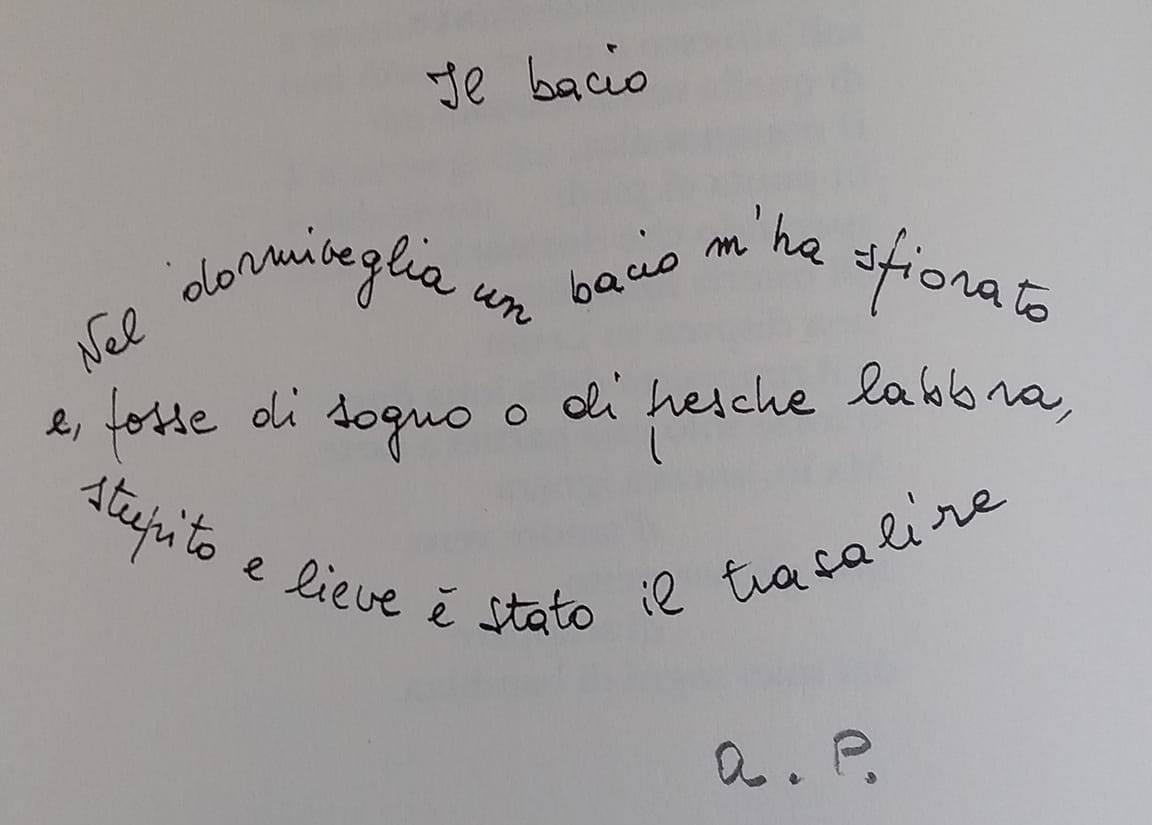 Il bacio
Nel dormiveglia un bacio m'ha sfiorato
e, fosse di sogno o di fresche labbra,
stupito e lieve è stato il trasalire
a. P.